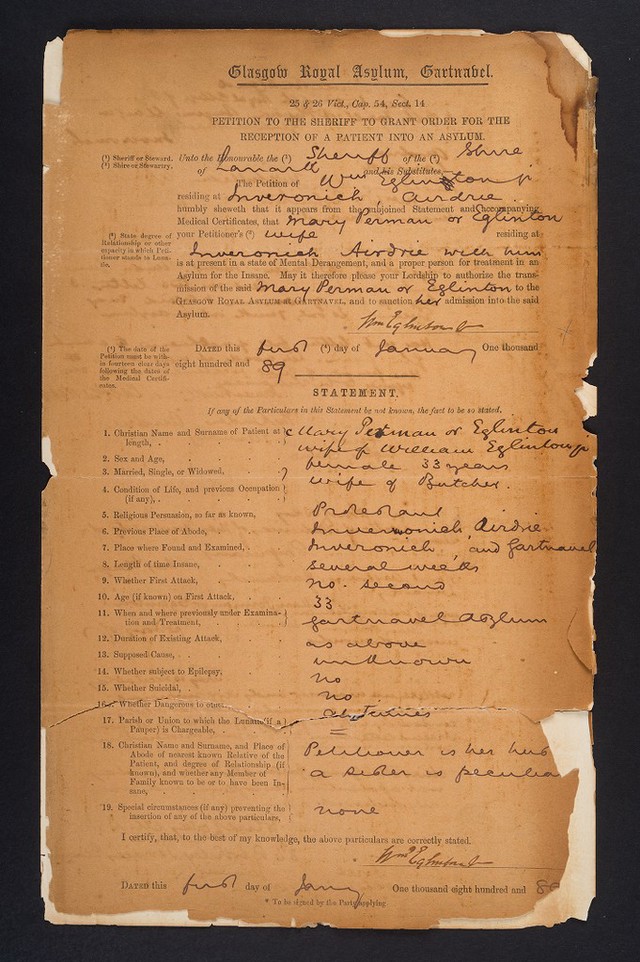 Glasgow Royal Asylum, Gartnavel.
25 & 26 Vict., Cap. 54, Sect. 14
PETITION TO THE SHERIFF TO GRANT ORDER FOR THE
RECEPTION OF A PATIENT INTO AN ASYLUM.
(¹) Sheriff or Steward.
(²) Shire or Stewartry.
Unto the Honourable the (¹) Sheriff of the (²) Shire
of Lanark and his Substitutes,
The Petition of Wm Eglinton jr
residing at Inveronich, Airdrie
humbly sheweth that it appears from the subjoined Statement and accompanying
Medical Certificates, that Mary Perman or Eglinton
(³) State degree of
Relationship or other
capacity in which Peti-
tioner stands to Luna-
tic.
your Petitioner's (³) wife residing at
Inveronich Airdrie with him
is at present in a state of Mental Derangement, and a proper person for treatment in an
Asylum for the Insane. May it therefore please your Lordship to authorise the trans-
mission of the said Mary Perman or Eglinton to the
GLASGOW ROYAL ASYLUM AT GARTNAVEL, and to sanction her admission into the said
Asylum.
Wm Eglinton Jr
(⁴) The date of the
Petition must be with-
in fourteen clear days
following the dates of
the Medical Certifi-
cates.
DATED this first (⁴) day of January One thousand
eight hundred and 89
STATEMENT.
If any of the Particulars in this Statement be not known, the fact to be so stated.
1. Christian Name and Surname of Patient at length, Mary Perman or Eglinton
wife of William Eglinton jr
2. Sex and Age, female 33 years
3. Married, Single, or Widowed,
4. Condition of Life, and previous Occupation (if any), wife of Butcher.
5. Religious Persuasion, so far as known, Protestant
6. Previous Place of Abode, Inveronich, Airdrie
7. Place where Found and Examined, Inveronich, and Gartnavel
8. Length of time Insane, several weeks
9. Whether First Attack, no. second
10. Age (if known) on First Attack, 33
11. When and where previously under Examina-
tion and Treatment, Gartnavel Asylum
12. Duration of Existing Attack, as above
13. Supposed Cause, unknown
14. Whether subject to Epilepsy, no
15. Whether Suicidal, no
16. Whether Dangerous to others, at times
17. Parish or Union to which the Lunatic (if a
Pauper) is Chargeable,
18. Christian Name and Surname, and Place of
Abode of nearest known Relative of the
Patient, and degree of Relationship (if
known), and whether any Member of
Family known to be or to have been In-
sane,
Petitioner is her
a sister is
19. Special circumstances (if any) preventing the
insertion of any of the above particulars, none
I certify, that, to the best of my knowledge, the above particulars are correctly stated.
Wm Eglinton Jr
DATED this first day of Jany One thousand eight hundred and 89
* To be signed by the Party applying